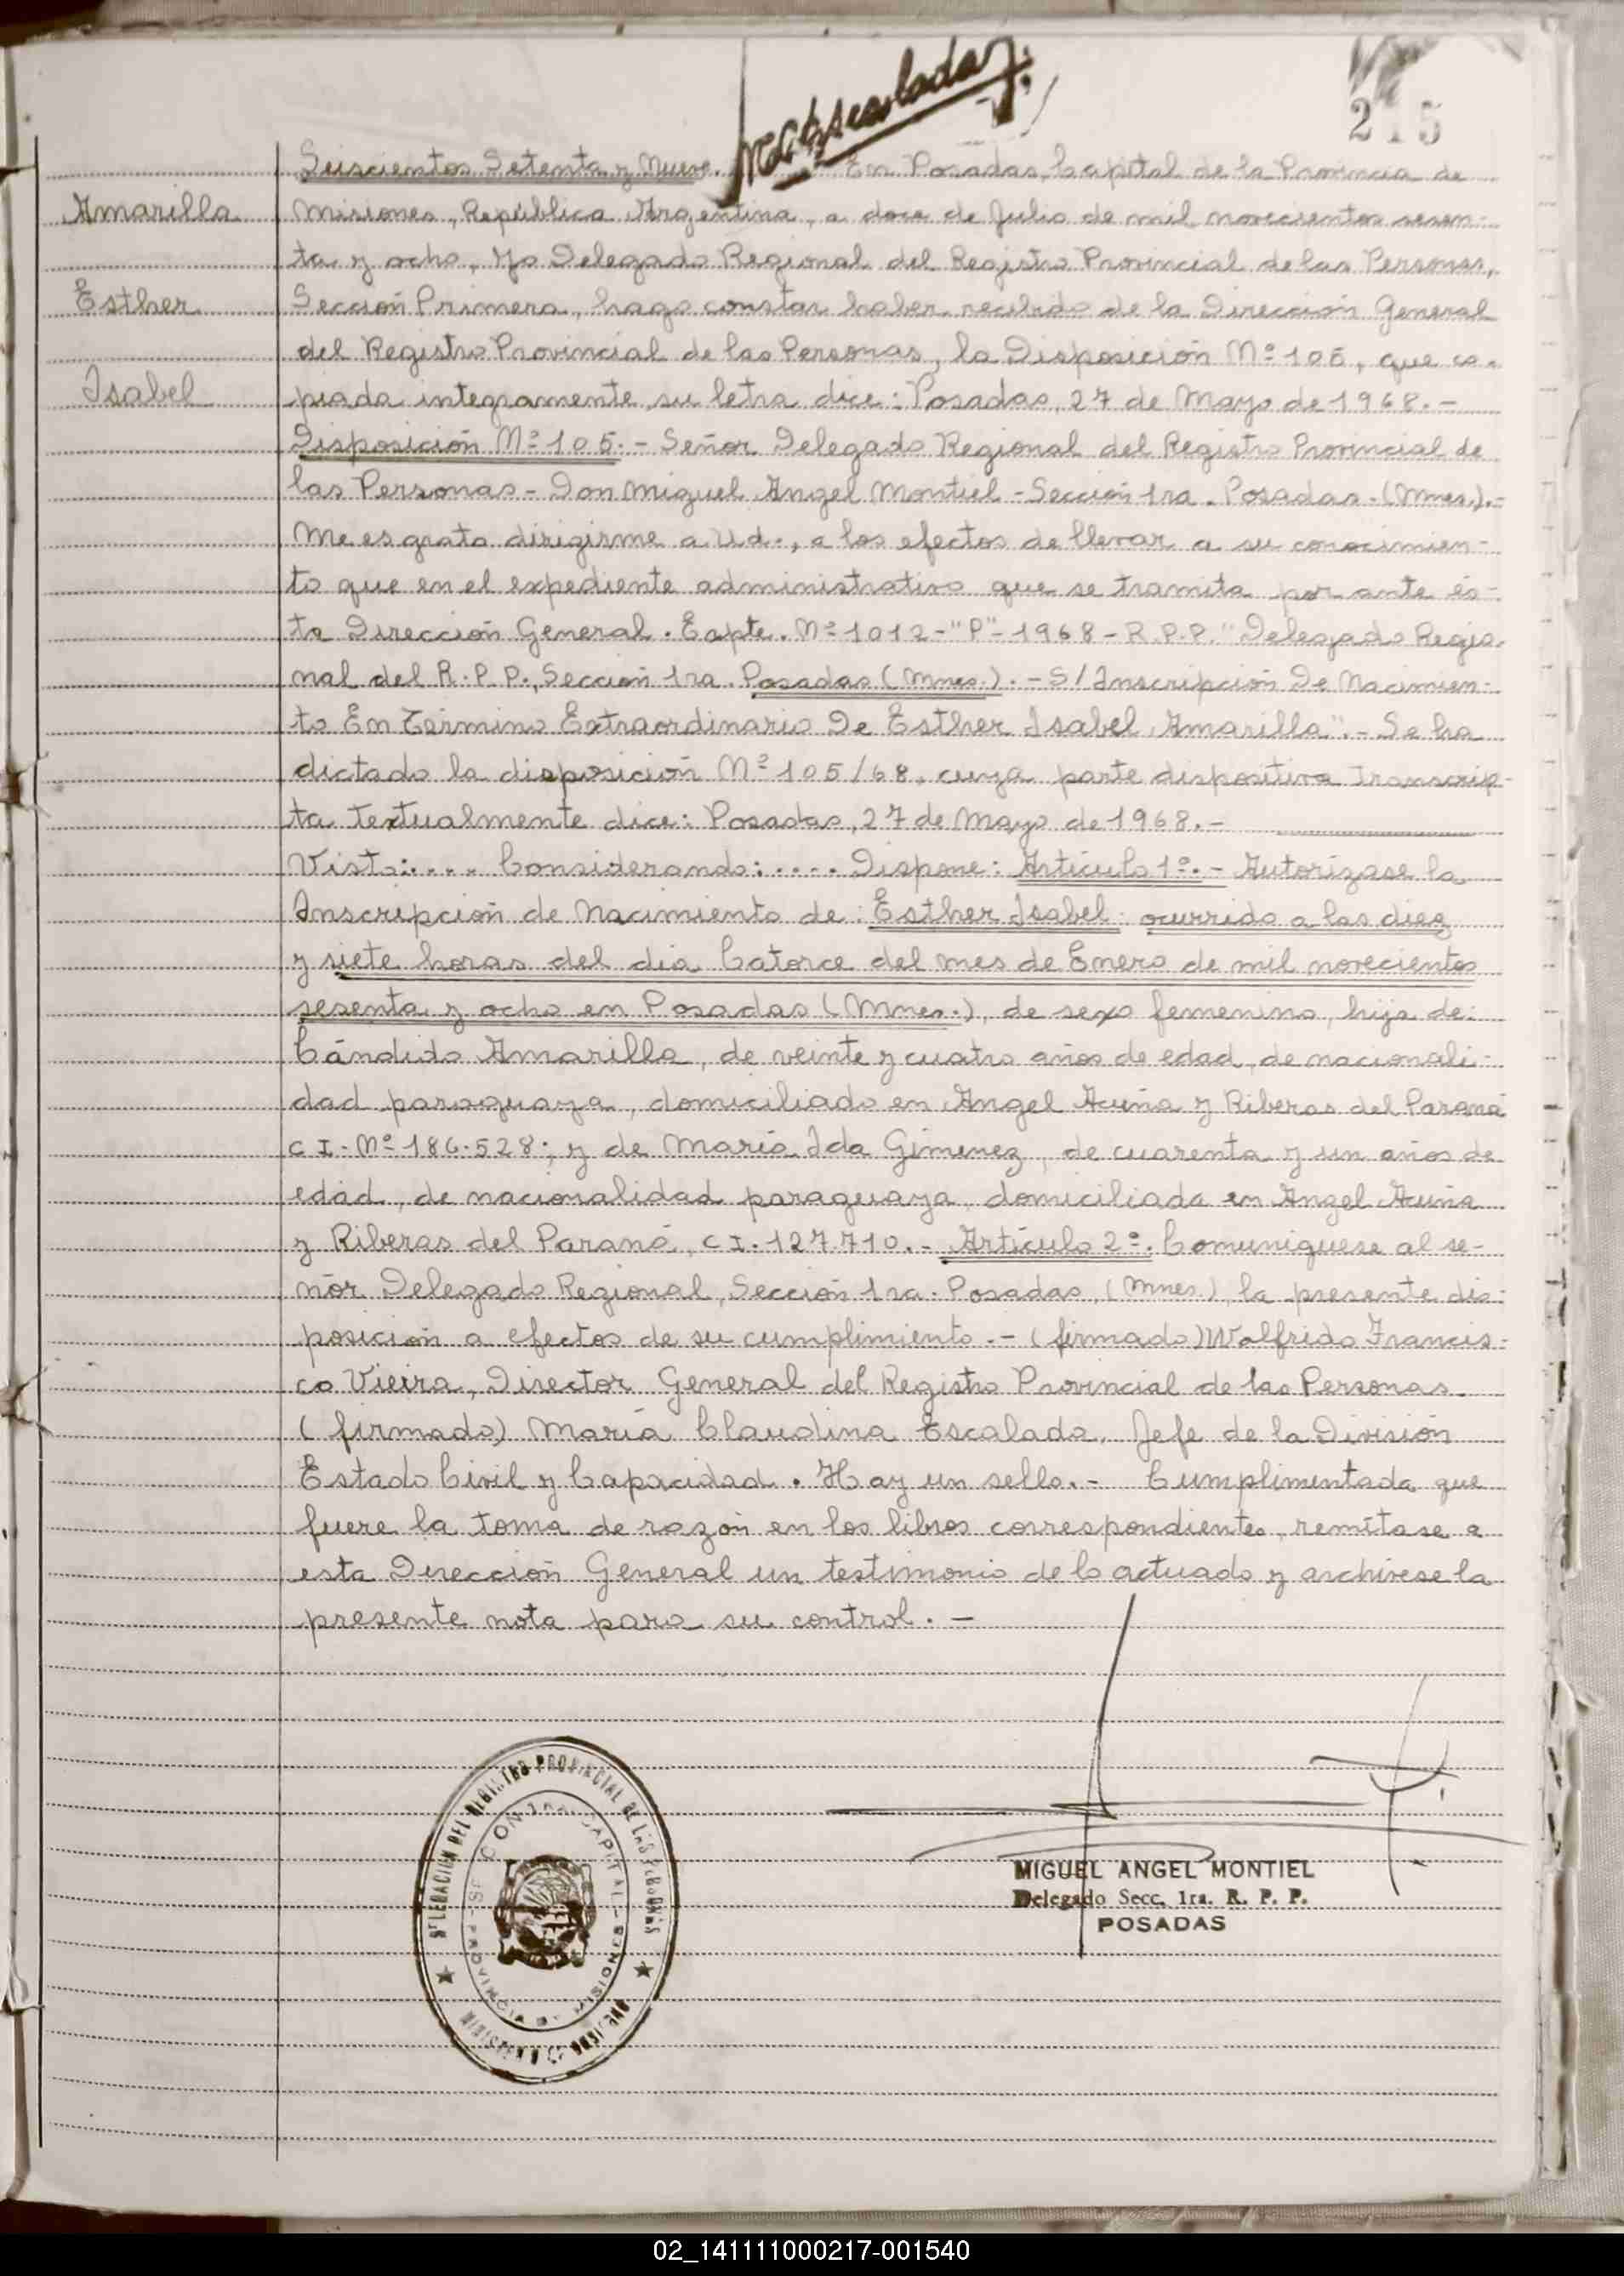 215
Seiscientos Setenta y Nueve. En Posadas, Capital de la Provincia de
Amarilla
Misiones, República Argentina, a doce de Julio de mil novecientos sesen-
ta y ocho, Yo Delegado Regional del Registro Provincial de las Personas,
Esther
Sección Primera, hago constar haber recibido de la Dirección General
del Registro Provincial de las Personas, la Disposición Nº 105, que co-
Isabel
piada integramente su letra dice: Posadas, 27 de Mayo de 1968.-
Disposición Nº 105.- Señor Delegado Regional del Registro Provincial de
las Personas - Don Miguel Angel Montiel - Sección 1ra. Posadas.(Mnes.).-
Me es grato dirigirme a Ud., a los efectos de llevar a su conocimien-
to que en el expediente administrativo que se tramita por ante és-
ta Dirección General. Expte. Nº 1012-"P"-1968-R.P.P. "Delegado Regio-
nal del R.P.P., Sección 1ra. Posadas (Mnes.).- S/Inscripción De Nacimien-
to En Término Extraordinario De Esther Isabel Amarilla".- Se ha
dictado la disposición Nº 105/68, cuya parte dispositiva transcrip-
ta textualmente dice: Posadas, 27 de Mayo de 1968.-
Visto:.... Considerando:.... Dispone: Artículo 1º.- Autorízase la
Inscripción de Nacimiento de: Esther Isabel: ocurrido a las diez
y siete horas del dia Catorce del mes de Enero de mil novecientos
sesenta y ocho en Posadas (Mnes.), de sexo femenino, hija de:
Cándido Amarilla, de veinte y cuatro años de edad, de nacionali-
dad paraguaya, domiciliado en Angel Acuña y Riberas del Paraná
C I. Nº 186.528; y de María Ida Gimenez, de cuarenta y un años de
edad, de nacionalidad paraguaya, domiciliada en Angel Acuña
y Riberas del Paraná, C I. 127.710.- Artículo 2º. Comuniquese al se-
ñor Delegado Regional, Sección 1ra. Posadas, (Mnes.), la presente dis-
posición a efectos de su cumplimiento.- (firmado) Wolfrido Francis-
co Vieira, Director General del Registro Provincial de las Personas.
(firmado) María Claudina Escalada, Jefe de la División
Estado Civil y Capacidad. Hay un sello.- Cumplimentada que
fuere la toma de razón en los libros correspondientes, remítase a
esta Dirección General un testimonio de lo actuado y archívese la
presente nota para su control.-
DEL REGISTRO PROVINCIAL DE LAS PERSONAS
CAPITAL - PROVINCIA DE MISIONES
MIGUEL ANGEL MONTIEL
Delegado Secc. 1ra. R. P. P.
POSADAS
02_141111000217-001540